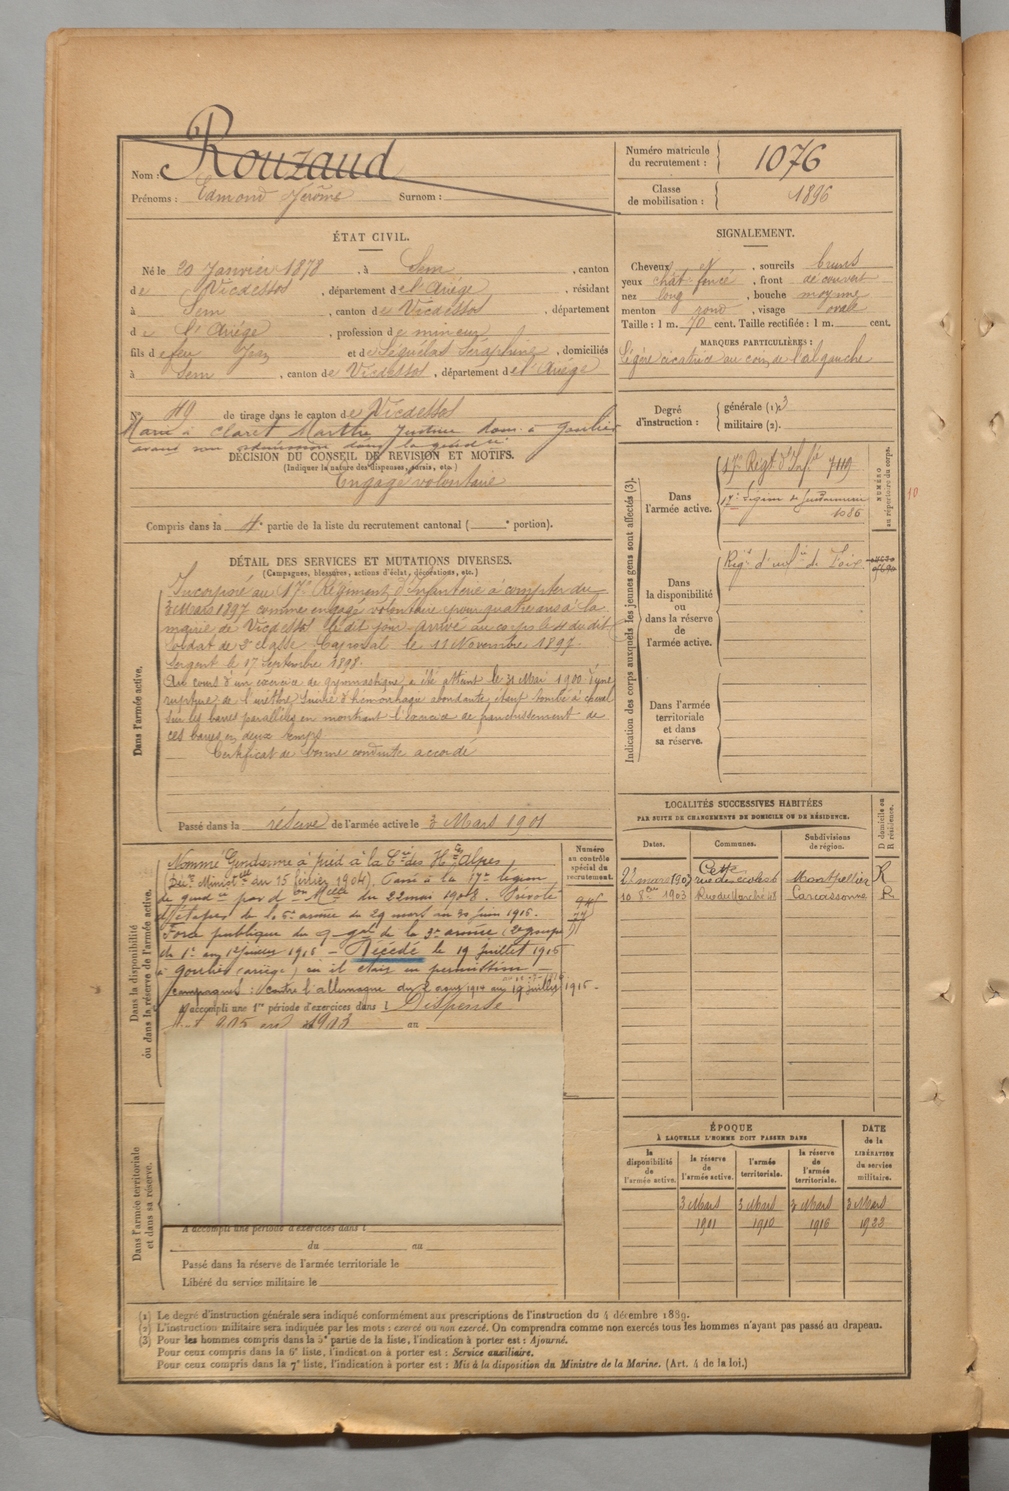 Nom : Rouzaud
Prénoms : Edmond Jérôme Surnom :
Numéro matricule du recrutement : 1076
Classe de mobilisation : 1896
ÉTAT CIVIL.
Né le 20 Janvier 1878, à Sem, canton
de Vicdessos, département de l'Ariége, résidant
à Sem, canton de Vicdessos, département
de l'Ariége, profession de mineur
fils de feu Jean et de Séguélas Séraphine, domiciliés
à Sem, canton de Vicdessos, département de l'Ariége
N° 49 de tirage dans le canton de Vicdessos
Marié à Claret Marthe Justine dom. à Goulier
avant son admission dans la gend rie
DÉCISION DU CONSEIL DE REVISION ET MOTIFS.
(Indiquer la nature des dispenses, sursis, etc.)
Engagé volontaire
Compris dans la 4e partie de la liste du recrutement cantonal ( e portion).
SIGNALEMENT.
Cheveux et, sourcils bruns
yeux chât. foncé, front découvert
nez long, bouche moyenne
menton rond, visage ovale
Taille : 1 m. 70 cent. Taille rectifiée : 1 m. cent.
MARQUES PARTICULIÈRES :
Légère cicatrice au coin de l'œil gauche
Degré d'instruction : générale (1). 3
militaire (2).
Indication des corps auxquels les jeunes gens sont affectés (3).
NUMÉRO au répertoire du corps.
Dans l'armée active.
17e Régt d'Infie 7119
17e Légion de Gendarmerie
1086
10
Dans la disponibilité ou dans la réserve de l'armée active.
Regt d'infie de Foix
Dans l'armée territoriale et dans sa réserve.
DÉTAIL DES SERVICES ET MUTATIONS DIVERSES.
(Campagnes, blessures, actions d'éclat, décorations, etc.)
Dans l'armée active.
Incorporé au 17e Régiment d'Infanterie à compter du
3 Mars 1897 comme engagé volontaire pour quatre ans à la
mairie de Vicdessos le dit jour. Arrivé au corps le du dit
soldat de 2e classe. Caporal le 11 Novembre 1897.
Sergent le 17 Septembre 1898.
Au cours d'un exercice de gymnastique a été atteint le 31 Mai 1900 d'une
rupture de l'urèthre suivie d'hémorrhagie abondante, étant tombé à cheval
sur les barres parallèles en montrant l'exercice de franchissement de
ces barres en deux temps
Certificat de bonne conduite accordé
Passé dans la réserve de l'armée active le 3 Mars 1901
Dans la disponibilité ou dans la réserve de l'armée active.
Numéro au contrôle spécial du recrutement.
Nommé Gendarme à pied à la Cie des Htes Alpes
(Déc. Ministlle du 15 février 1904). Passé à la 17e légion
de gend rie par d on Mlle du 22 mai 1908. Prévôté
d'étapes de la 6e armée du 29 mars au 30 juin 1915.
Force publique du q. gal de la 3e armée (2e groupe)
du 1er juillet 1915 – Décédé le 19 juillet 1915
à Goulier (Ariège) où il était en permission –
Campagnes : contre l'allemagne du 2 août 1914 au 19 juillet 1915.
A accompli une 1re période d'exercices dans l Dispensé
au
LOCALITÉS SUCCESSIVES HABITÉES
PAR SUITE DE CHANGEMENTS DE DOMICILE OU DE RÉSIDENCE.
Dates. Communes. Subdivisions de région. D domicile ou R résidence.
22 mars 1903 Cette Montpellier R
10 8bre 1903 Carcassonne R
ÉPOQUE
À LAQUELLE L'HOMME DOIT PASSER DANS
DATE de la LIBÉRATION du service militaire.
la disponibilité de l'armée active. la réserve de l'armée active. l'armée territoriale. la réserve de l'armée territoriale.
3 Mars 3 Mars 3 Mars 3 Mars
1901 1910 1916 1922
Dans l'armée territoriale et dans sa réserve.
A accompli une période d'exercices dans l
du au
Passé dans la réserve de l'armée territoriale le
Libéré du service militaire le
(1) Le degré d'instruction générale sera indiqué conformément aux prescriptions de l'instruction du 4 décembre 1889.
(2) L'instruction militaire sera indiquée par les mots : exercé ou non exercé. On comprendra comme non exercés tous les hommes n'ayant pas passé au drapeau.
(3) Pour les hommes compris dans la 5e partie de la liste, l'indication à porter est : Ajourné.
Pour ceux compris dans la 6e liste, l'indication à porter est : Service auxiliaire.
Pour ceux compris dans la 7e liste, l'indication à porter est : Mis à la disposition du Ministre de la Marine. (Art. 4 de la loi.)